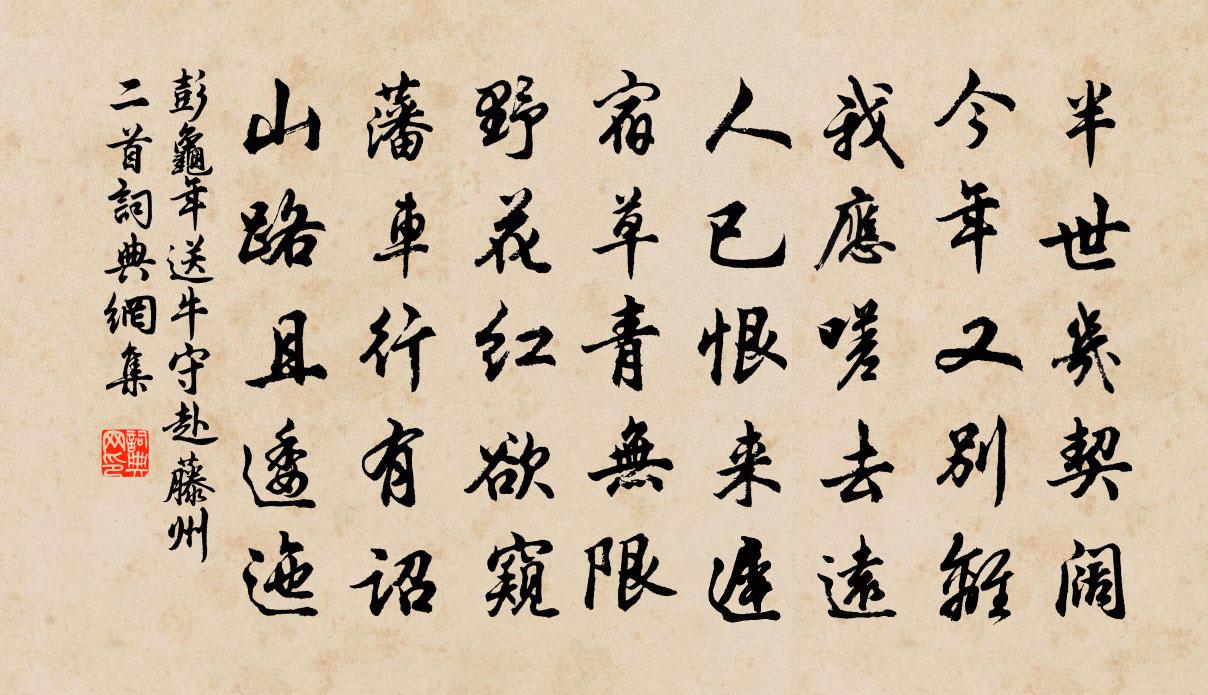 半世幾契闊
今年又別離
我應嗟去遠
人已恨来遲
宿草青無限
野花红欲窺
藩車行有詔
山路且逶迤
彭龜年送牛守赴藤州
二首詞典網集
詞典网印